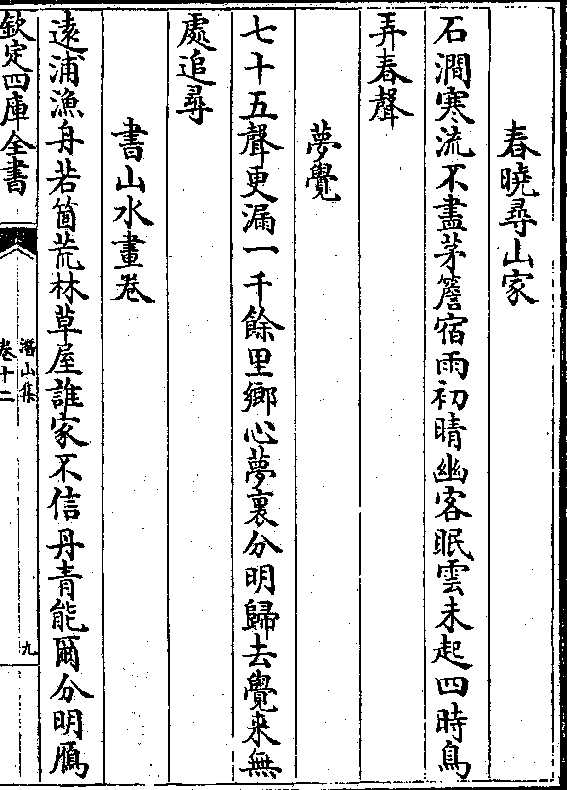 春曉尋山家
石澗寒流不盡茅簷宿雨初晴幽客眠雲未起四時鳥
弄春聲
夢覺
七十五聲更漏一千餘里鄉心夢裏分明歸去覺來無
處追尋
書山水畫卷
遠浦漁舟若箇荒林草屋誰家不信丹青能爾分明鴈
欽定四庫全書
潛山集
卷十二
九